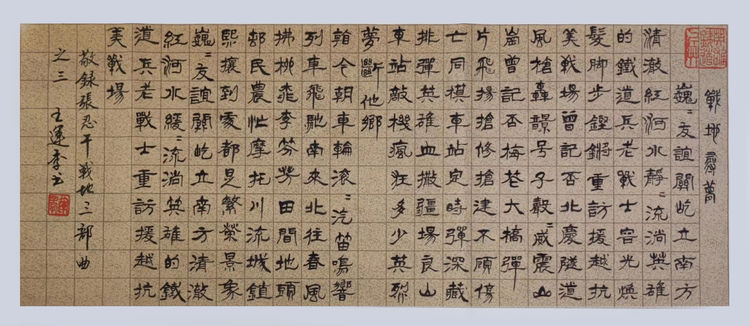 戰地尋夢
巍〻友誼關屹立南方
清澈紅河水靜〻流淌英雄
的鐵道兵老戰士容光煥
髮腳步鏗鏘重訪援越抗
美戰場曾記否北慶隧道
風槍轟号子威震山
崗曾記否梅花大橋彈
片飛揚搶修搶建不顧傷
亡同模車站定時彈深藏
排彈英雄血撒疆場良山
車站敵機瘋狂多少英烈
夢斷他鄉
今朝車輪滾〻汽笛鳴響
列車飛馳南來北往春風
拂柳桃李芬芳田間地頭
邨民農忙摩托川流城鎮
熙攘到處都是繁榮景象
巍〻友誼關屹立南方清澈
紅河水緩〻流淌英雄的鐵
道兵老戰士重訪援越抗
美戰場
敬錄張忍干戰地三部曲
之三 王運李书